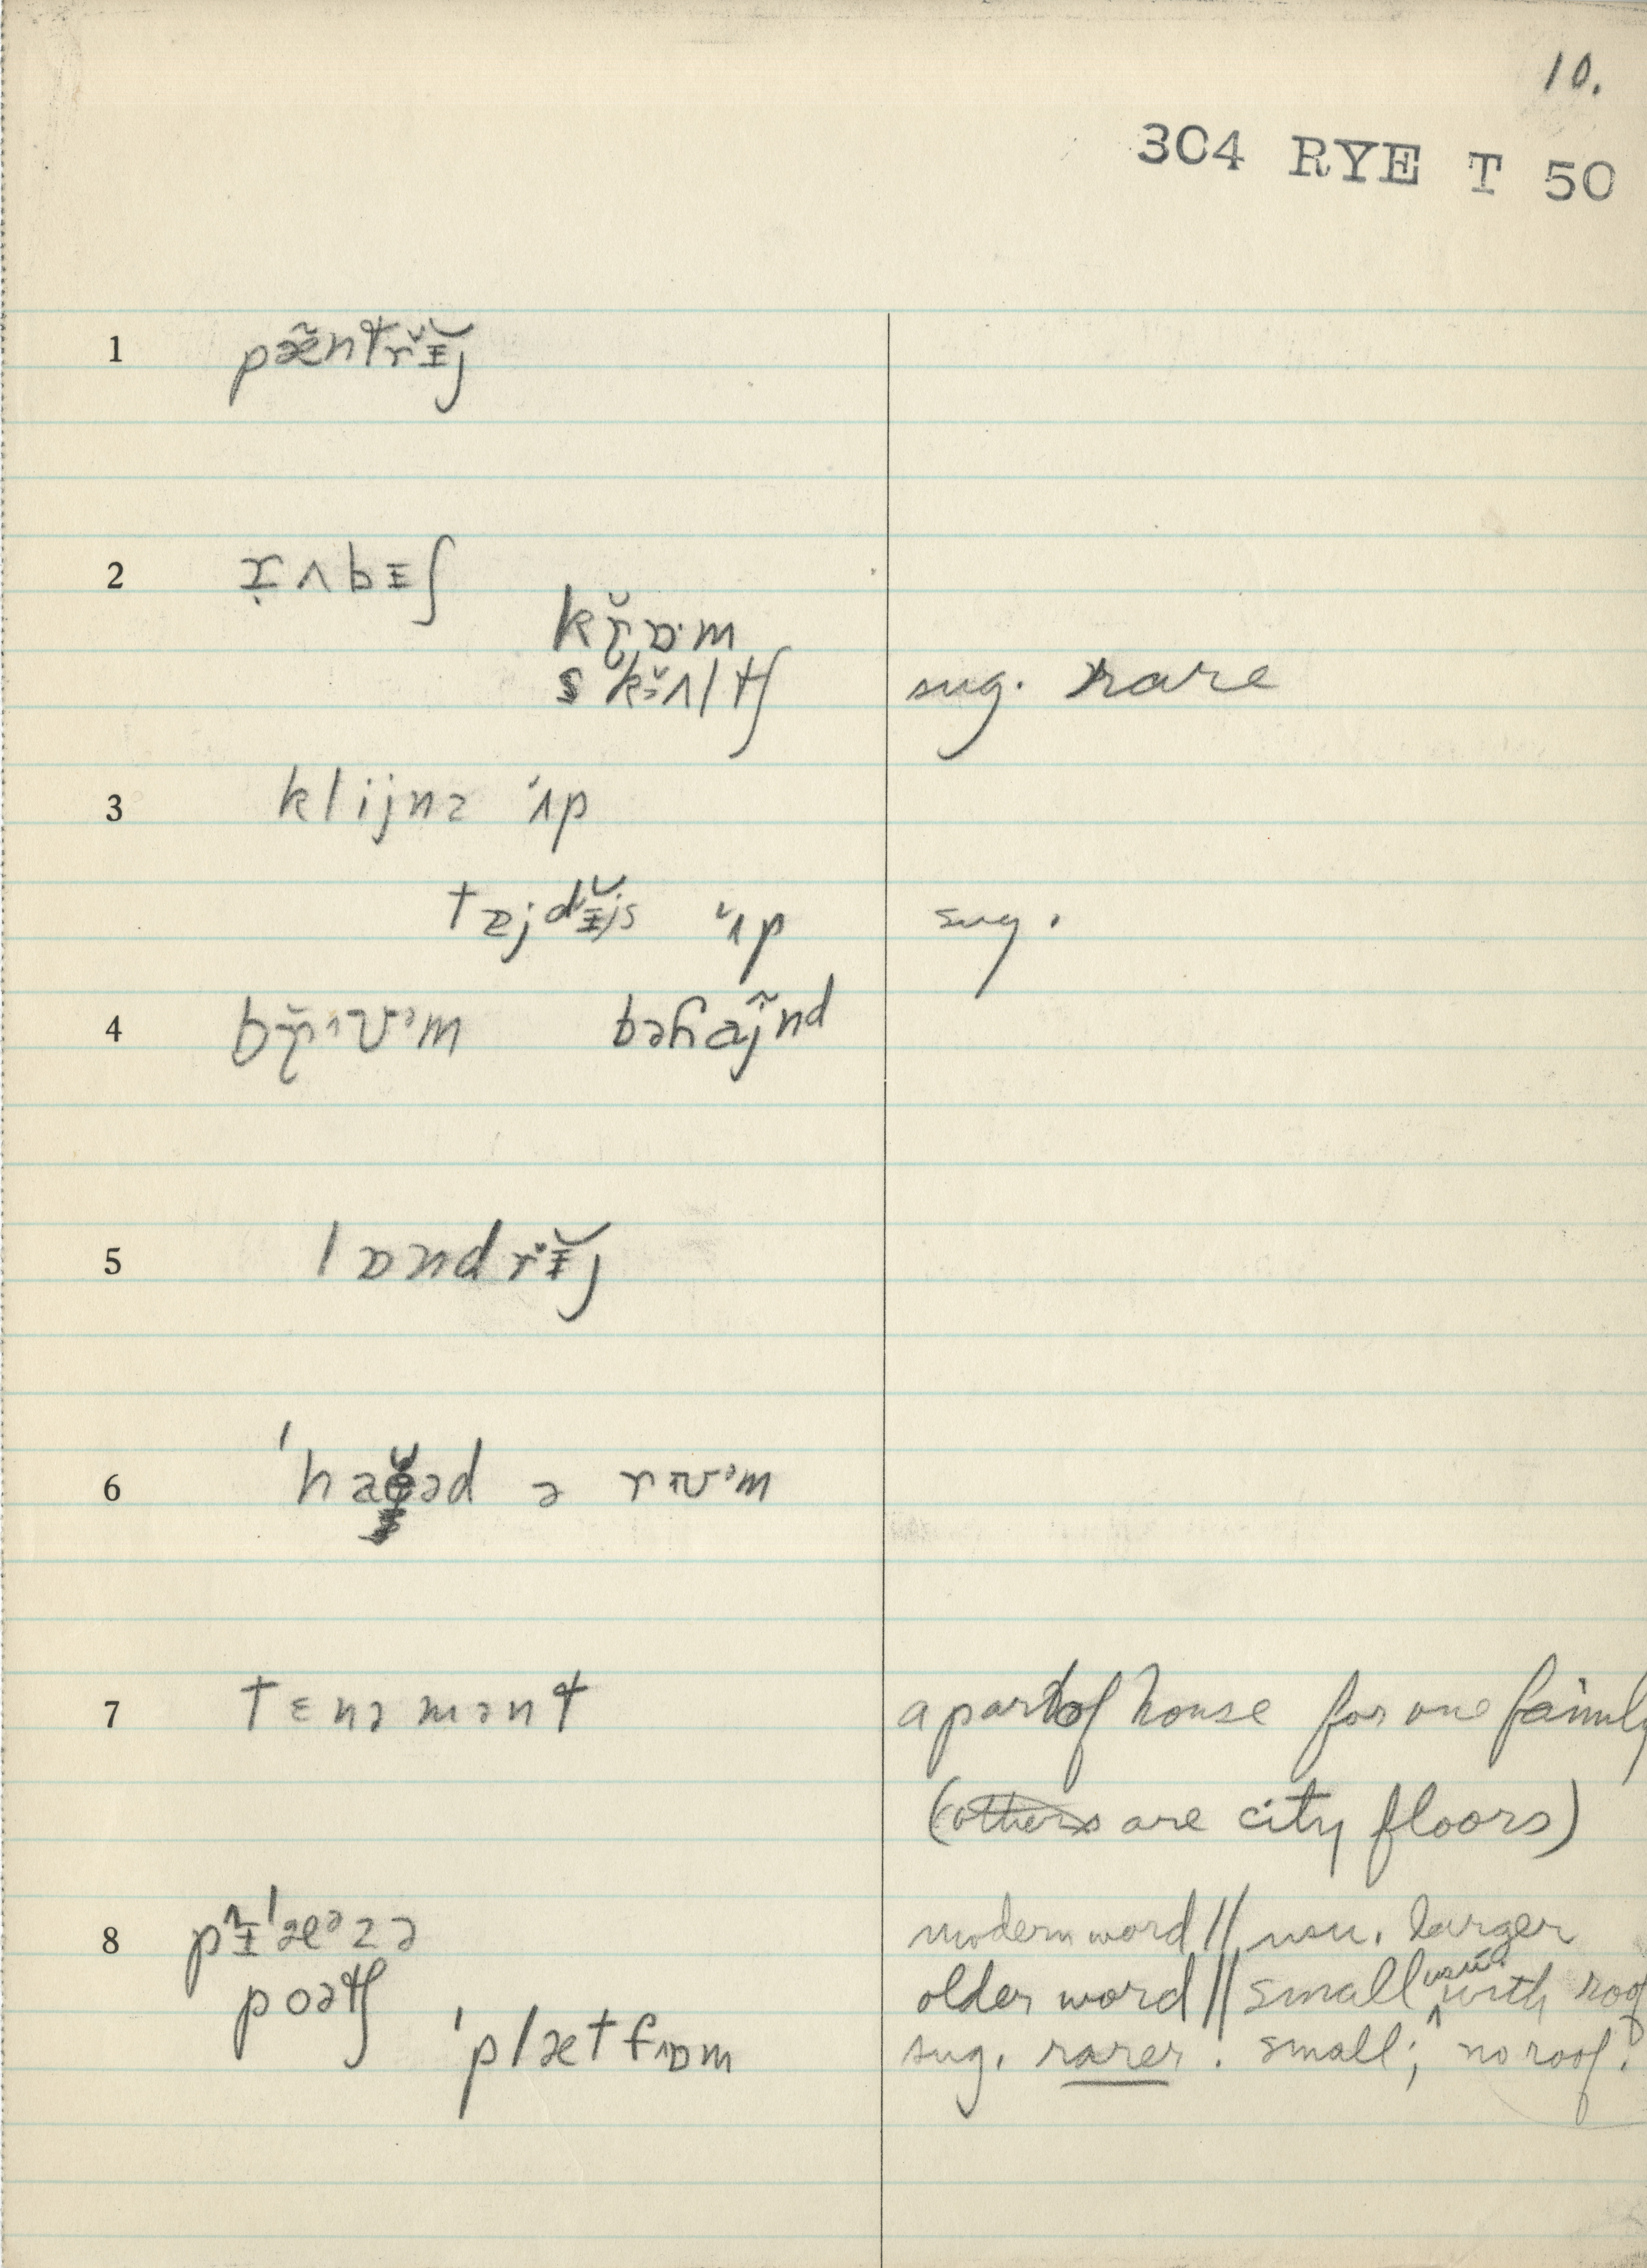 10.
304 RYE T 50
1 pæ̃ntrɨ̆j
2 ɾ̣ʌbɨʃ
kɾ̯̆ɒ·m
skɔ̯̆ʌltʃ sug. rare
3 klijnz ʹʌp
tɐjdɨ̆js ̆ʹʌp sug.
4 bɾ̯̆ᶦʊᵊm bəɦaj̃nd
5 lɒndrɨ̆j
6 ˈhaəd ə rɪʊᵊm
7 tɛnəmənt a part of house for one family
(others are city floors)
8 pɨˈæᵊzə modern word // usu. larger
poətʃ older word // small usu. with roof
ˈplætfɒm sug. rarer. small; no roof.